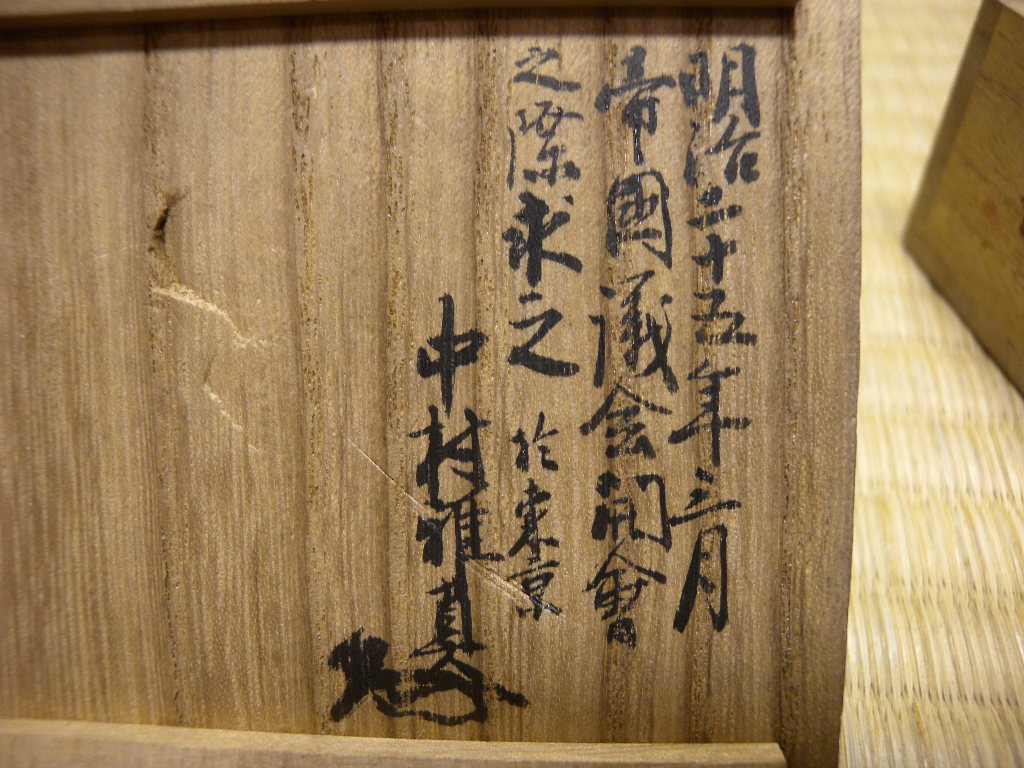 明治二十五年三月
帝國議会開會
之際求之 於東京
中村雅真